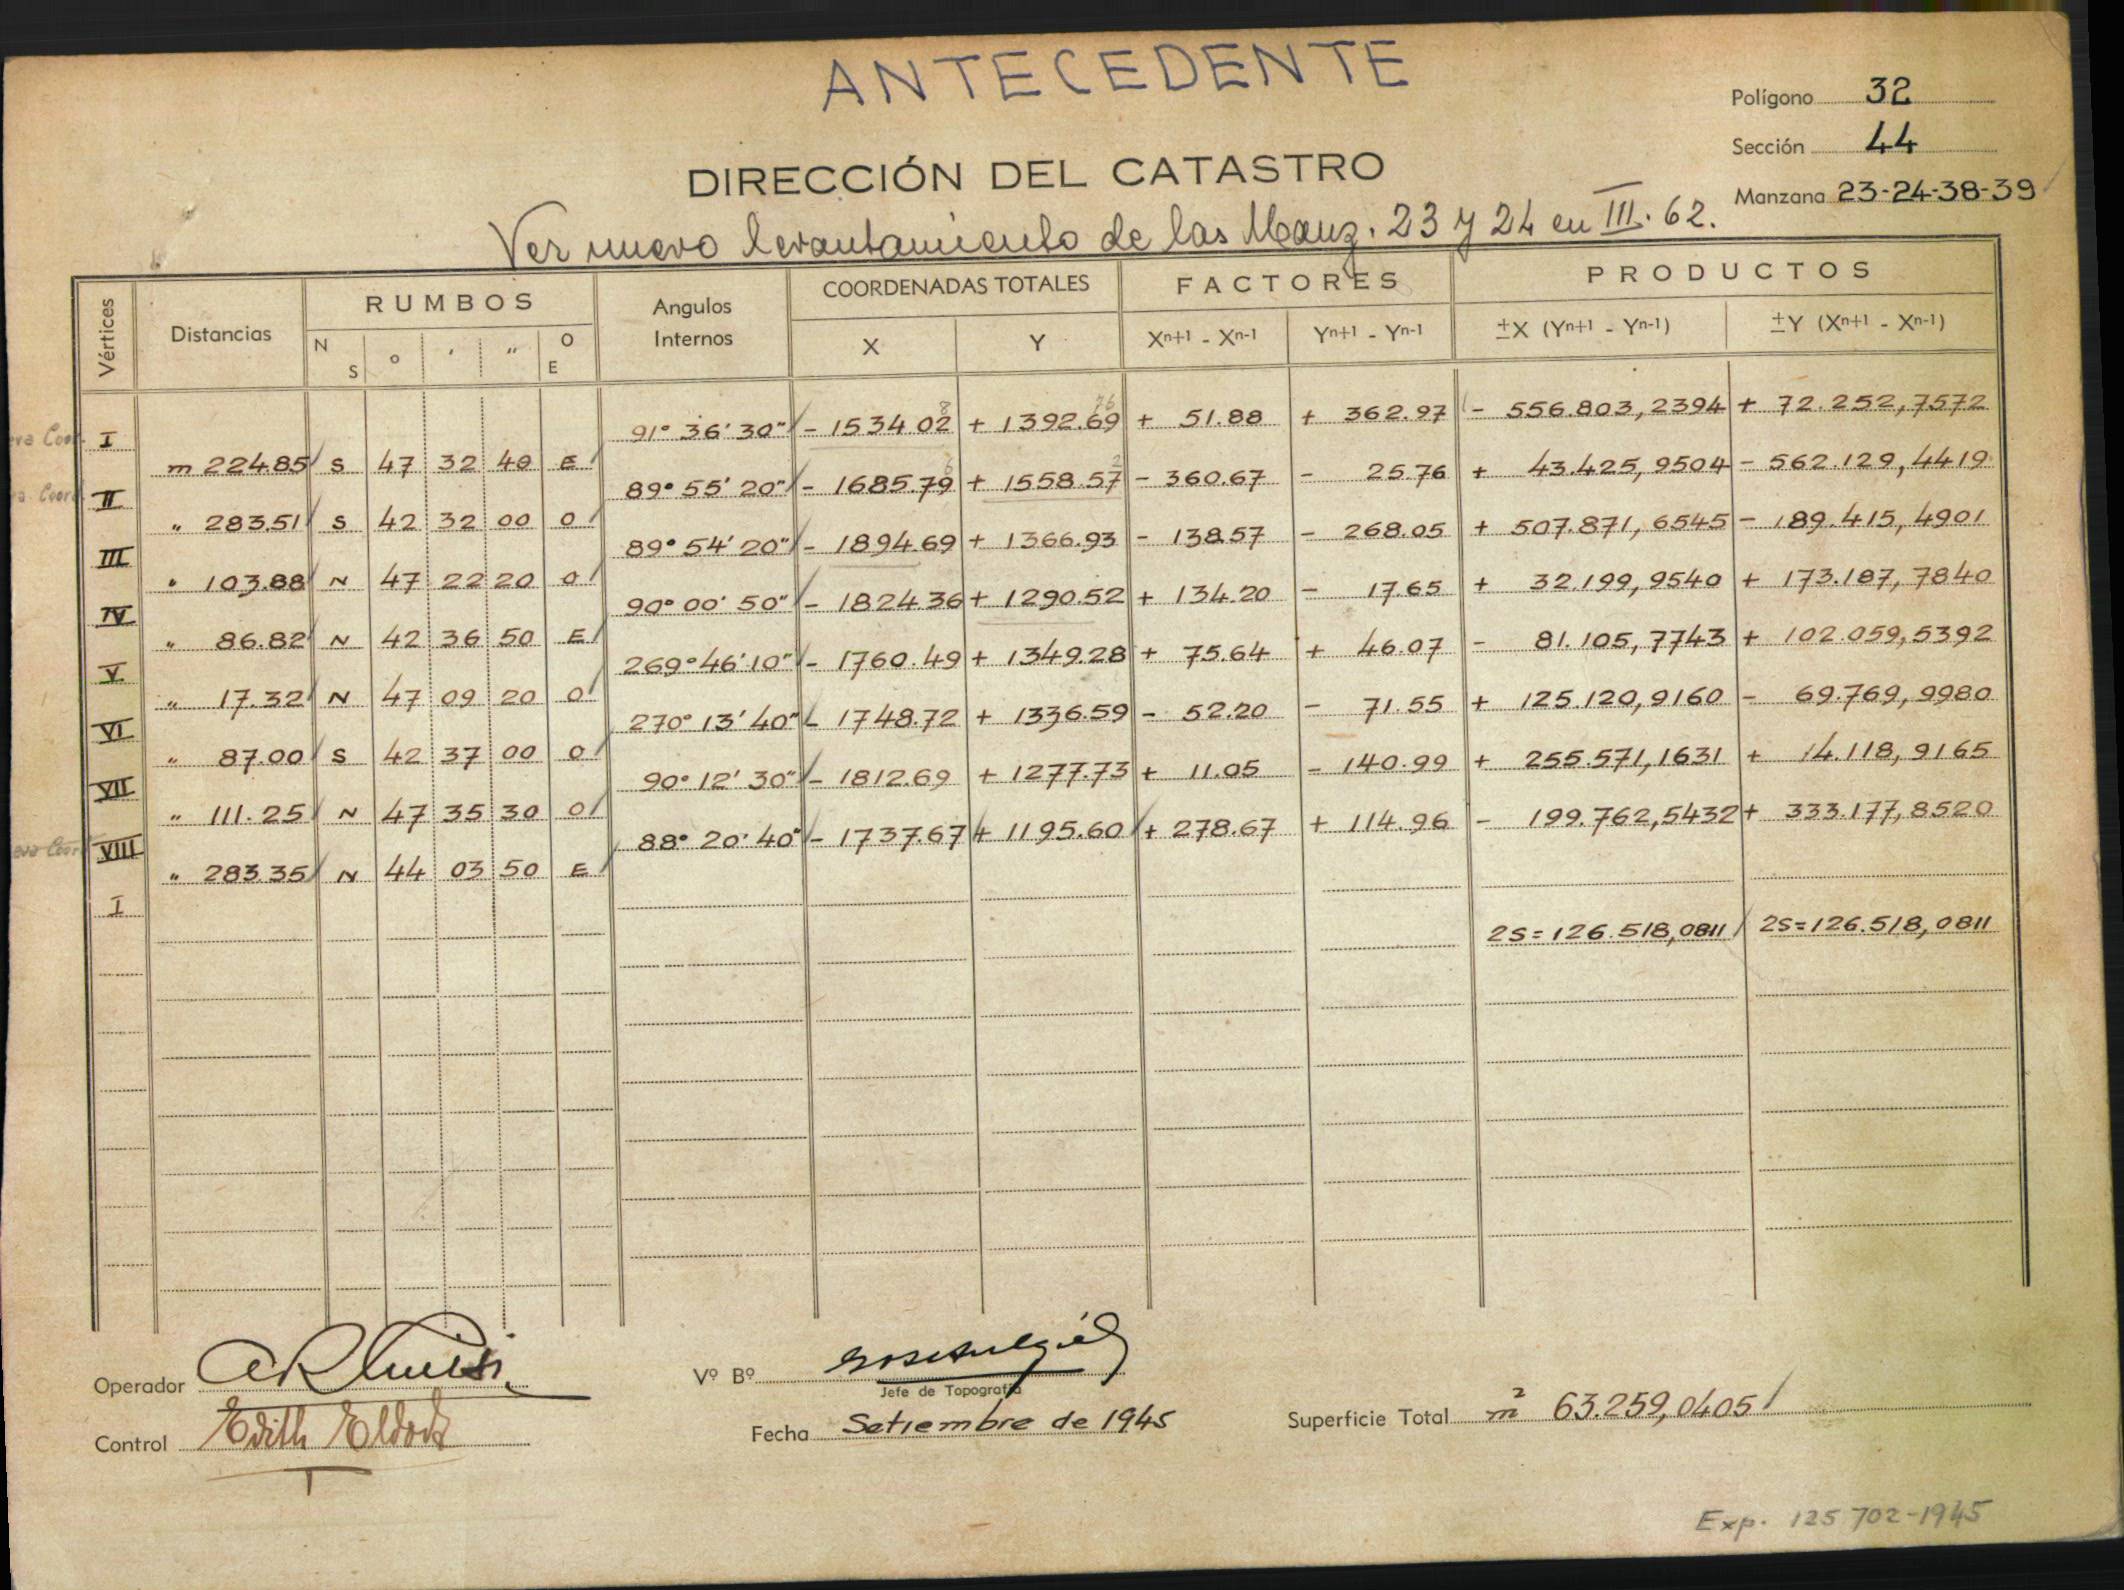 ANTECEDENTE
Polígono 32
Sección 44
Manzana 23-24-38-39
DIRECCIÓN DEL CATASTRO
Ver nuevo levantamiento de las Manz. 23 y 24 en III. 62.
Vértices Distancias RUMBOS Angulos Internos COORDENADAS TOTALES FACTORES PRODUCTOS
N S ° ' " O E X Y Xn+1 - Xn-1 Yn+1 - Yn-1 ±X (Yn+1 - Yn-1) ±Y (Xn+1 - Xn-1)
I 91° 36' 30" - 1534.02 + 1392.69 + 51.88 + 362.97 - 556.803,2394 + 72.252,7572
m 224.85 S 47 32 40 E
II 89° 55' 20" - 1685.79 + 1558.57 - 360.67 - 25.76 + 43.425,9504 - 562.129,4419
" 283.51 S 42 32 00 O
III 89° 54' 20" - 1894.69 + 1366.93 - 138.57 - 268.05 + 507.871,6545 - 189.415,4901
" 103.88 N 47 22 20 O
IV 90° 00' 50" - 1824.36 + 1290.52 + 134.20 - 17.65 + 32.199,9540 + 173.187,7840
" 86.82 N 42 36 50 E
V 269° 46' 10" - 1760.49 + 1349.28 + 75.64 + 46.07 - 81.105,7743 + 102.059,5392
" 17.32 N 47 09 20 O
VI 270° 13' 40" - 1748.72 + 1336.59 - 52.20 - 71.55 + 125.120,9160 - 69.769,9980
" 87.00 S 42 37 00 O
VII 90° 12' 30" - 1812.69 + 1277.73 + 11.05 - 140.99 + 255.571,1631 + 14.118,9165
" 111.25 N 47 35 30 O
VIII 88° 20' 40" - 1737.67 + 1195.60 + 278.67 + 114.96 - 199.762,5432 + 333.177,8520
" 283.35 N 44 03 50 E
I
2S=126.518,0811 2S=126.518,0811
Operador
Vº Bº
Jefe de Topografía
Control Edith
Fecha Setiembre de 1945
Superficie Total m² 63.259,0405
Exp. 125702-1945